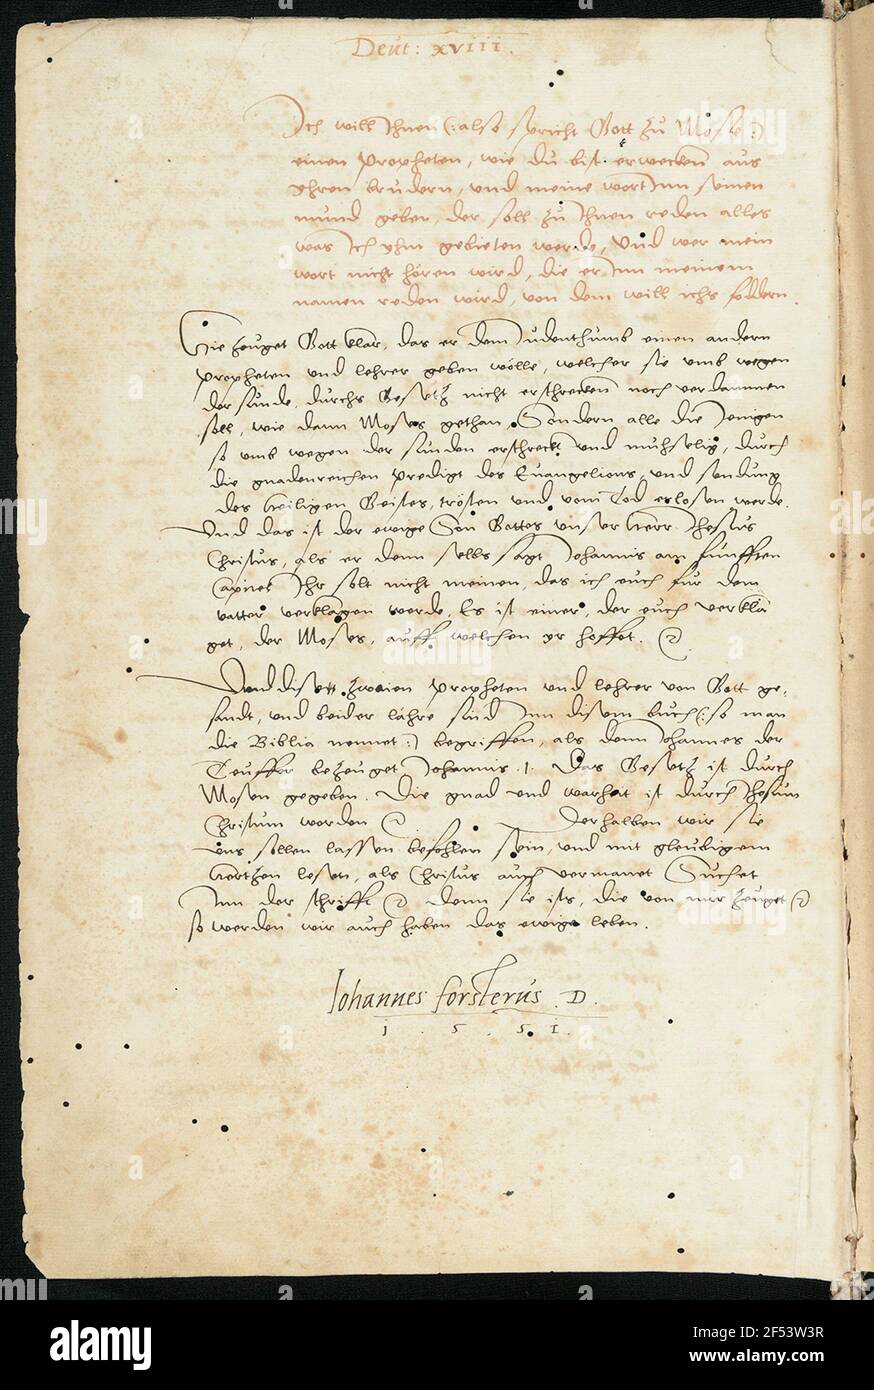 Deut: xviii.
Ich will Ihnen (: also spricht Gott zu Mose :)
einen propheten, wie du bist. erwecken aus
yhren brudern, und meine wort Inn seinen
mund geben, der soll zu Ihnen reden alles
was Ich yhm gebieten werde, Und wer mein
wort nicht hören wird, die er Inn meinem
namen reden wird, von dem will ichs foddern.
Hie zeuget Gott klar, das er dem Judenthumb einen andern
propheten und lehrer geben wölle, welcher sie umb wegen
der sunde, durchs Gesetz nicht erschrecken noch verdammen
soll, wie dann Moses gethan, Sondern alle die Jenigen
so umb wegen der sunden erschreckt und muhselig, durch
die gnadenreichen predigt des Euangelions, und sendung
des heiligen Geistes, trösten und vom Tod erlosen werde.
Und das ist der ewige Son Gottes unser herr Jhesus
Christus, als er denn selbs sagt Johannis am funfften
Capitel Ihr solt nicht meinen, das ich euch fur dem
vatter verklagen werde, Es ist einer, der euch verkla
get, der Moses, auff welchen yr hoffet.
Vnd diset zweien propheten und lehrer von Gott ge-
sandt, und beider lahre sind Inn disem buch (: so man
die Biblia nennet :) begriffen, als denn Johannes der
Teuffer bezeuget Johannis .1. Das Gesetz ist durch
Mosen gegeben. Die gnad und warheit ist durch Jhesum
Christum worden Derhalben wir sie
uns sollen lassen befohlen sein, und mit gleubigem
hertzen lesen, als Christus auch vermanet Suchet
Inn der schrifft denn sie ists, die von mir zeuget
so werden wir auch haben das ewige leben.
Johannes forsterus . D.
1 . 5 . 5 1 .
alamy
Image ID: 2F53W3R
www.alamy.com